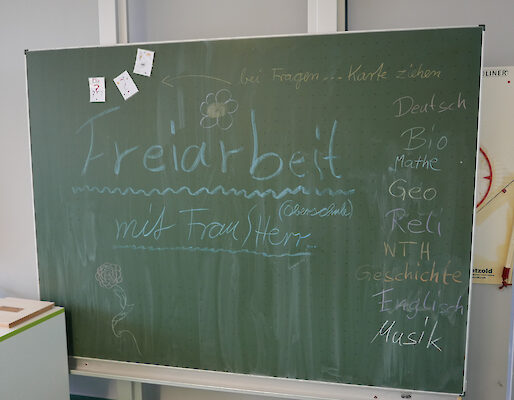 ?
bei Fragen... Karte ziehen
Freiarbeit
(Oberschule)
mit Frau/Herr...
Deutsch
Bio
Mathe
Geo
Reli
NTH
Geschichte
Englisch
Musik
LINER
atzold